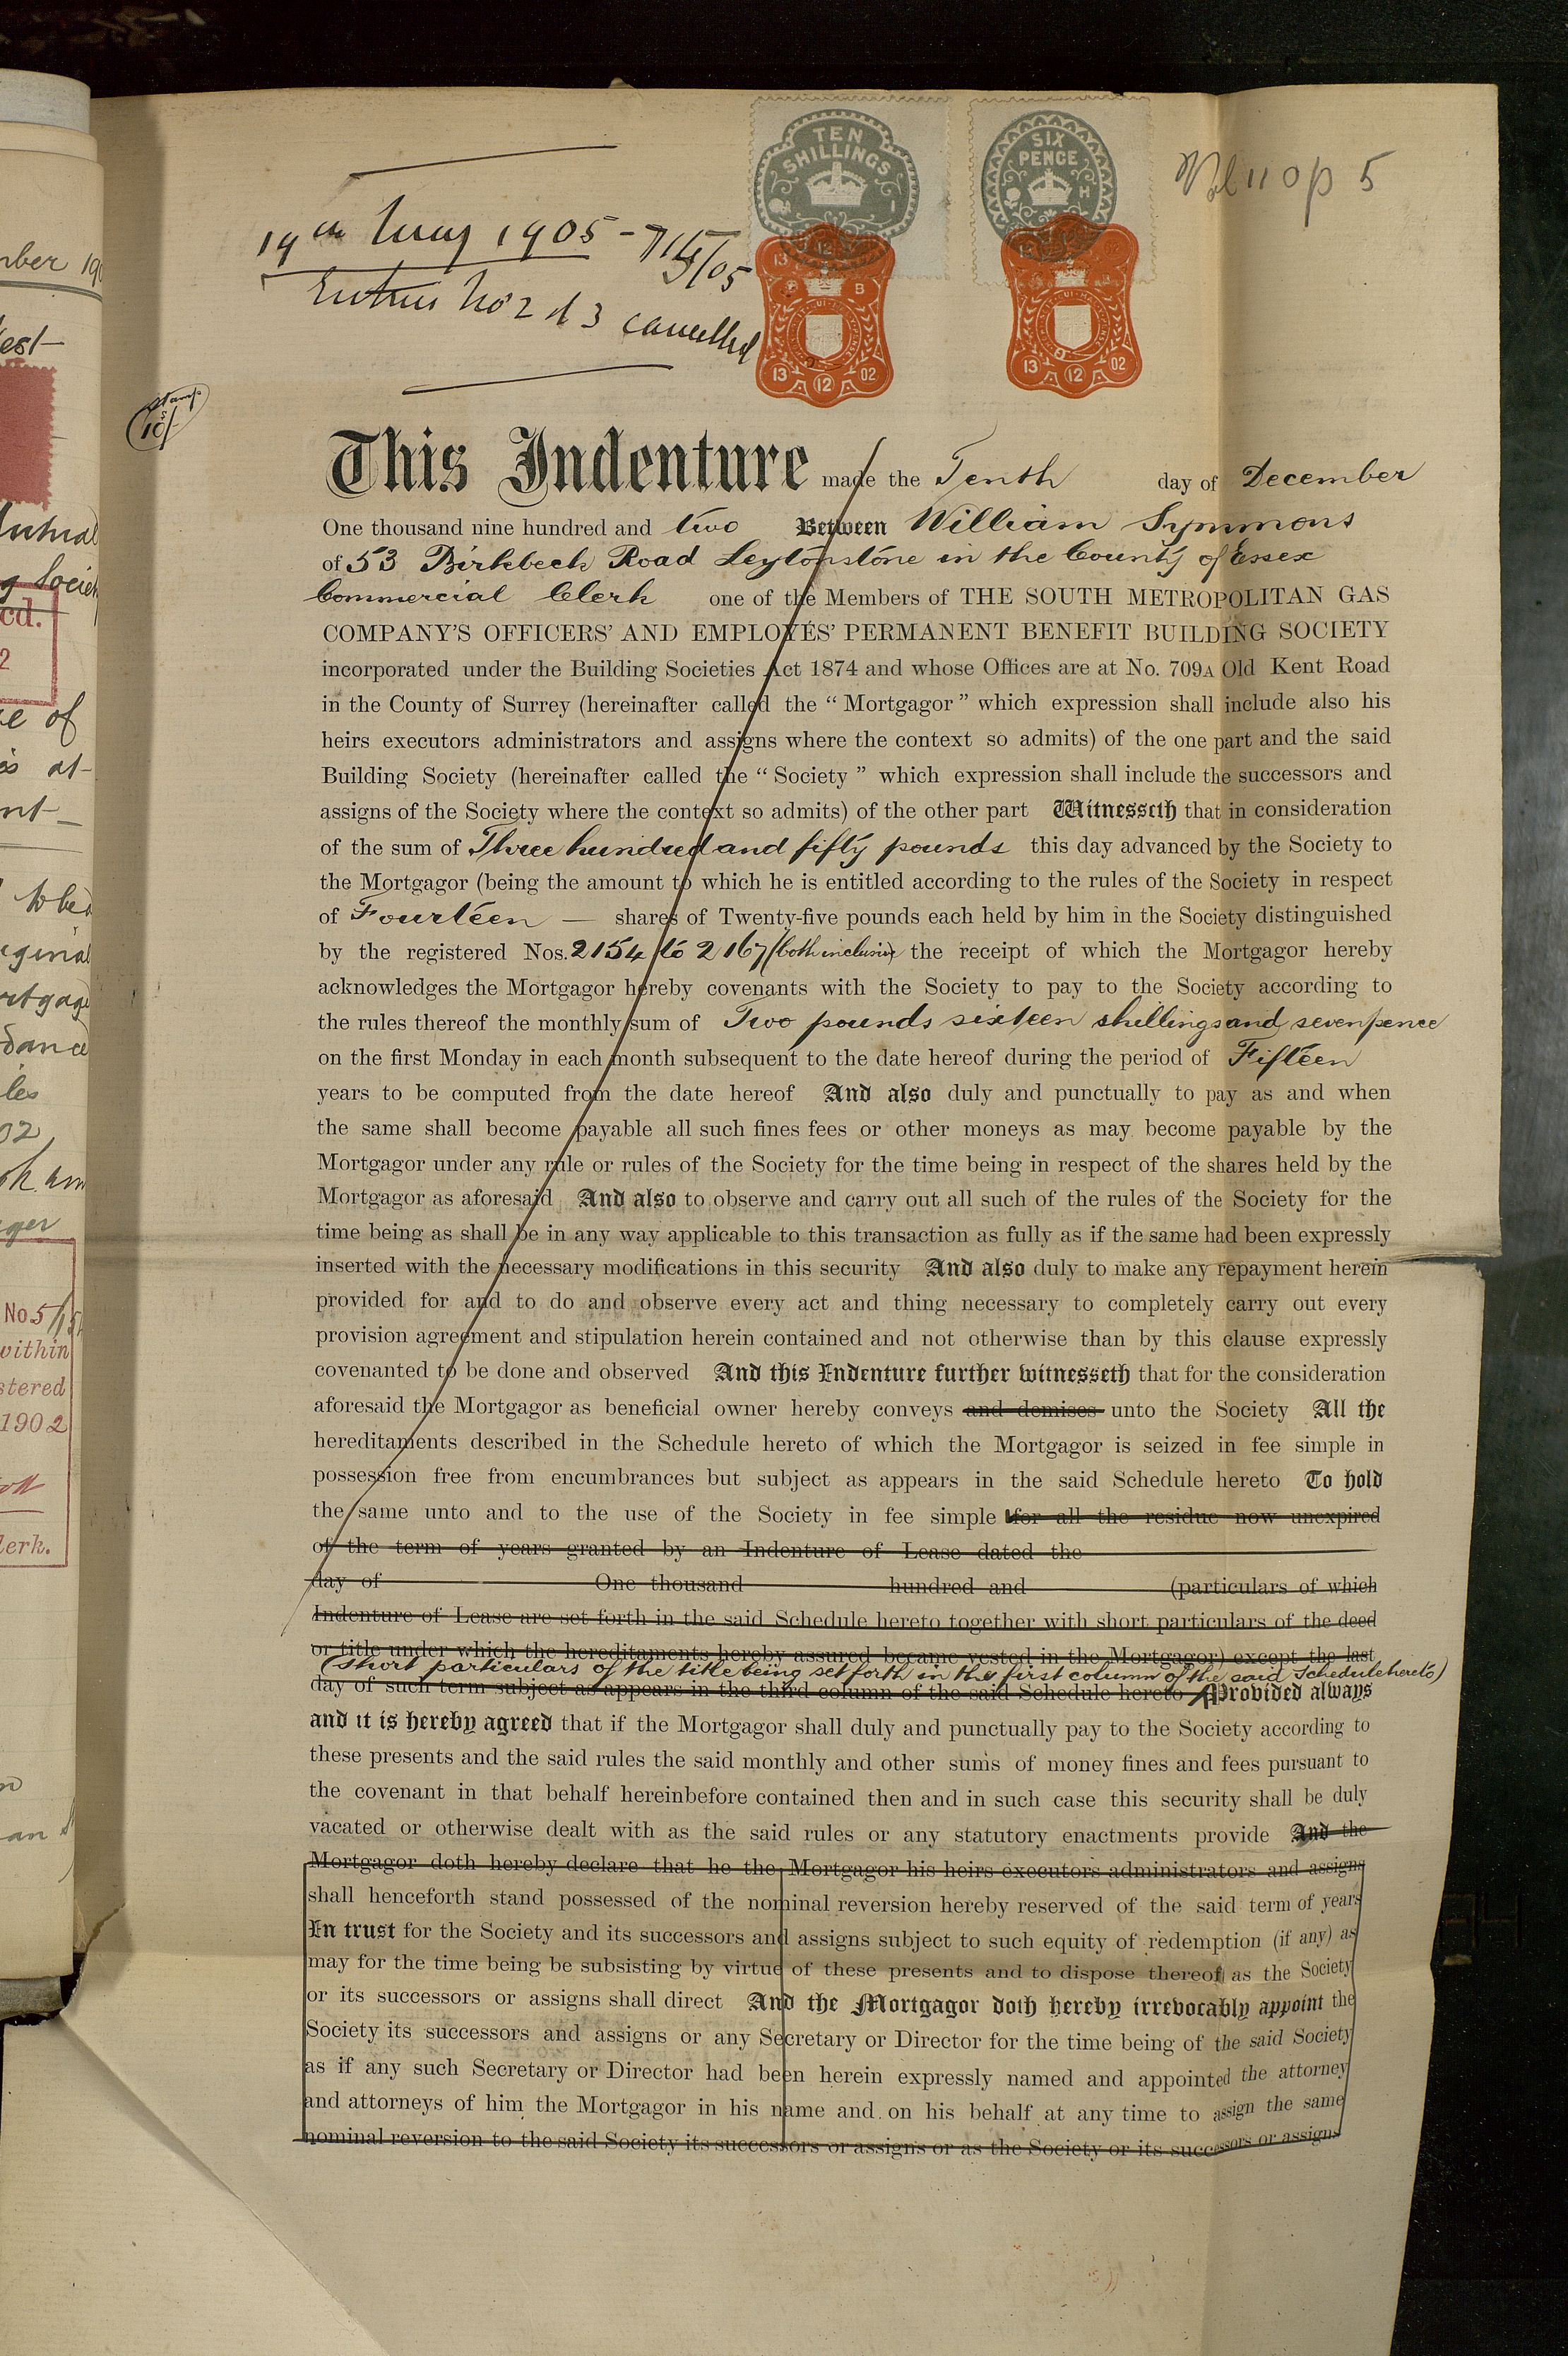 TEN
SHILLINGS
SIX
PENCE
H
19th May 1905 -
Entries No 2 & 3 cancelled
B
13 12 02
13 12 02
stamp
10s/-
This Indenture made the Tenth day of December
One thousand nine hundred and two Between William Symmons
of 53 Birkbeck Road Leytonstone in the County of Essex
Commercial Clerk one of the Members of THE SOUTH METROPOLITAN GAS
COMPANY'S OFFICERS' AND EMPLOYÉS' PERMANENT BENEFIT BUILDING SOCIETY
incorporated under the Building Societies Act 1874 and whose Offices are at No. 709A Old Kent Road
in the County of Surrey (hereinafter called the "Mortgagor" which expression shall include also his
heirs executors administrators and assigns where the context so admits) of the one part and the said
Building Society (hereinafter called the "Society" which expression shall include the successors and
assigns of the Society where the context so admits) of the other part Witnesseth that in consideration
of the sum of Three hundred and fifty pounds this day advanced by the Society to
the Mortgagor (being the amount to which he is entitled according to the rules of the Society in respect
of Fourteen — shares of Twenty-five pounds each held by him in the Society distinguished
by the registered Nos. 2154 to 2167 (both inclusive) the receipt of which the Mortgagor hereby
acknowledges the Mortgagor hereby covenants with the Society to pay to the Society according to
the rules thereof the monthly sum of Two pounds sixteen shillings and sevenpence
on the first Monday in each month subsequent to the date hereof during the period of Fifteen
years to be computed from the date hereof And also duly and punctually to pay as and when
the same shall become payable all such fines fees or other moneys as may become payable by the
Mortgagor under any rule or rules of the Society for the time being in respect of the shares held by the
Mortgagor as aforesaid And also to observe and carry out all such of the rules of the Society for the
time being as shall be in any way applicable to this transaction as fully as if the same had been expressly
inserted with the necessary modifications in this security And also duly to make any repayment herein
provided for and to do and observe every act and thing necessary to completely carry out every
provision agreement and stipulation herein contained and not otherwise than by this clause expressly
covenanted to be done and observed And this Indenture further witnesseth that for the consideration
aforesaid the Mortgagor as beneficial owner hereby conveys and demises unto the Society All the
hereditaments described in the Schedule hereto of which the Mortgagor is seized in fee simple in
possession free from encumbrances but subject as appears in the said Schedule hereto To hold
the same unto and to the use of the Society in fee simple for all the residue now unexpired
of the term of years granted by an Indenture of Lease dated the
day of One thousand hundred and (particulars of which
Indenture of Lease are set forth in the said Schedule hereto together with short particulars of the deed
or title under which the hereditaments hereby assured became vested in the Mortgagor) except the last
(short particulars of the title being set forth in the first column of the said Schedule hereto)
day of such term subject as appears in the third column of the said Schedule hereto Provided always
and it is hereby agreed that if the Mortgagor shall duly and punctually pay to the Society according to
these presents and the said rules the said monthly and other sums of money fines and fees pursuant to
the covenant in that behalf hereinbefore contained then and in such case this security shall be duly
vacated or otherwise dealt with as the said rules or any statutory enactments provide And the
Mortgagor doth hereby declare that he the Mortgagor his heirs executors administrators and assigns
shall henceforth stand possessed of the nominal reversion hereby reserved of the said term of years
In trust for the Society and its successors and assigns subject to such equity of redemption (if any) as
may for the time being be subsisting by virtue of these presents and to dispose thereof as the Society
or its successors or assigns shall direct And the Mortgagor doth hereby irrevocably appoint the
Society its successors and assigns or any Secretary or Director for the time being of the said Society
as if any such Secretary or Director had been herein expressly named and appointed the attorney
and attorneys of him the Mortgagor in his name and on his behalf at any time to assign the same
nominal reversion to the said Society its successors or assigns or as the Society or its successors or assigns